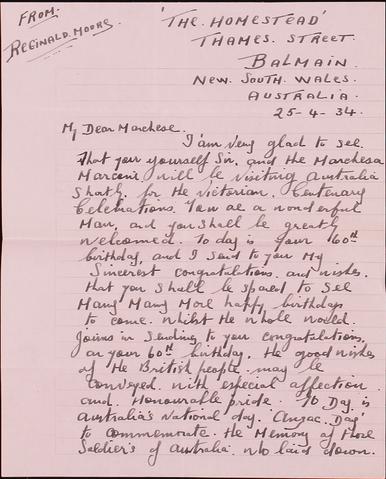 FROM.
REGINALD. MOORE.
'THE. HOMESTEAD'
THAMES. STREET.
BALMAIN.
NEW. SOUTH. WALES.
AUSTRALIA.
25-4-34.
My Dear Marchese.
I am very glad to see.
That your yourself Sir, and the Marchesa
Marconi will be visiting Australia
Shortly. for the Victorian. Centenary
Celebrations. You are a wonderful
Man, and you shall be greatly
welcomed. To day is your 60th
birthday, and I send to you My
Sincerest congratulations and wishes.
that you shall be spared to see
Many Many More happy birthdays
to come. Whilst the whole world.
Joins in sending to you congratulations.
on your 60th birthday. The good wishes
of the British people may be
conveyed with especial affection
and. Honourable pride. To Day is
Australia's National day. 'Anzac. Day'
to commemorate the Memory of those
Soldier's of Australia. who laid down.